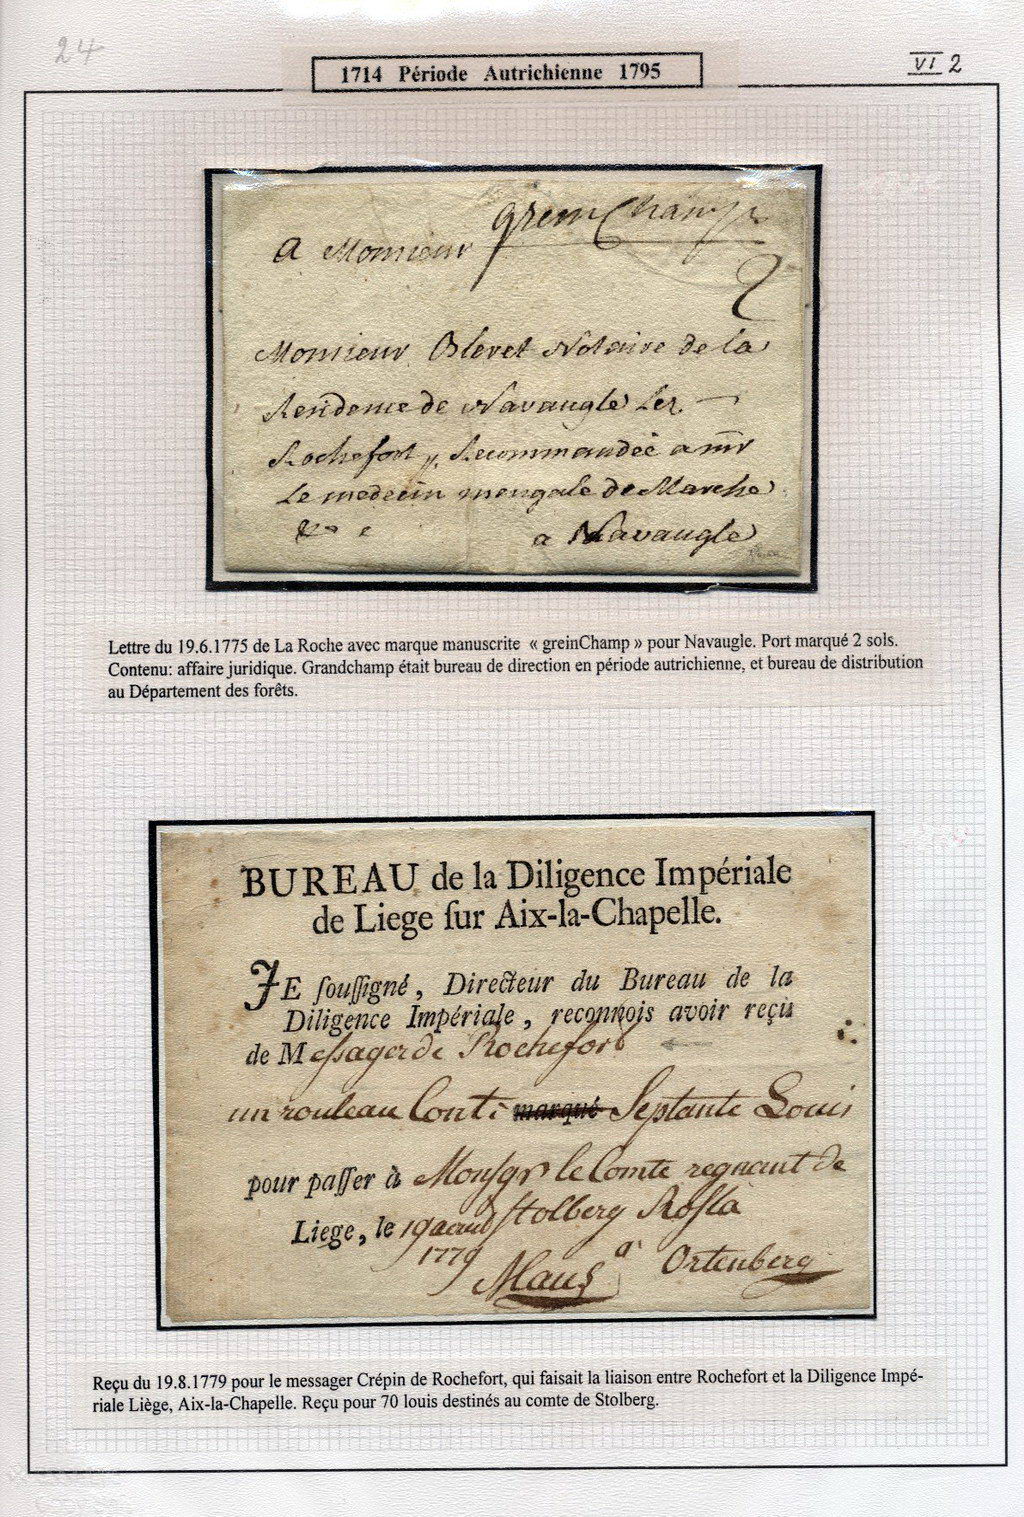 24
1714 Période Autrichienne 1795
VI 2
greinChamp
a Monsieur
2
Monsieur Bleret Notaire de la
Residence de Navaugle Lez
Rochefort, Recommandée a mr
Le medecin mengale de Marche
a Navaugle
Lettre du 19.6.1775 de La Roche avec marque manuscrite « greinChamp » pour Navaugle. Port marqué 2 sols.
Contenu: affaire juridique. Grandchamp était bureau de direction en période autrichienne, et bureau de distribution
au Département des forêts.
BUREAU de la Diligence Impériale
de Liege ſur Aix-la-Chapelle.
JE ſouſſigné, Directeur du Bureau de la
Diligence Impériale, reconnois avoir reçu
de Meſſager de Rochefort
un rouleau Conts marqué Septante Louis
pour paſſer à Monsgr le Comte regnant de
Liege, le 19 aoust Stolberg Roſla
1779 a Ortenberg
Maus
Reçu du 19.8.1779 pour le messager Crépin de Rochefort, qui faisait la liaison entre Rochefort et la Diligence Impé-
riale Liège, Aix-la-Chapelle. Reçu pour 70 louis destinés au comte de Stolberg.